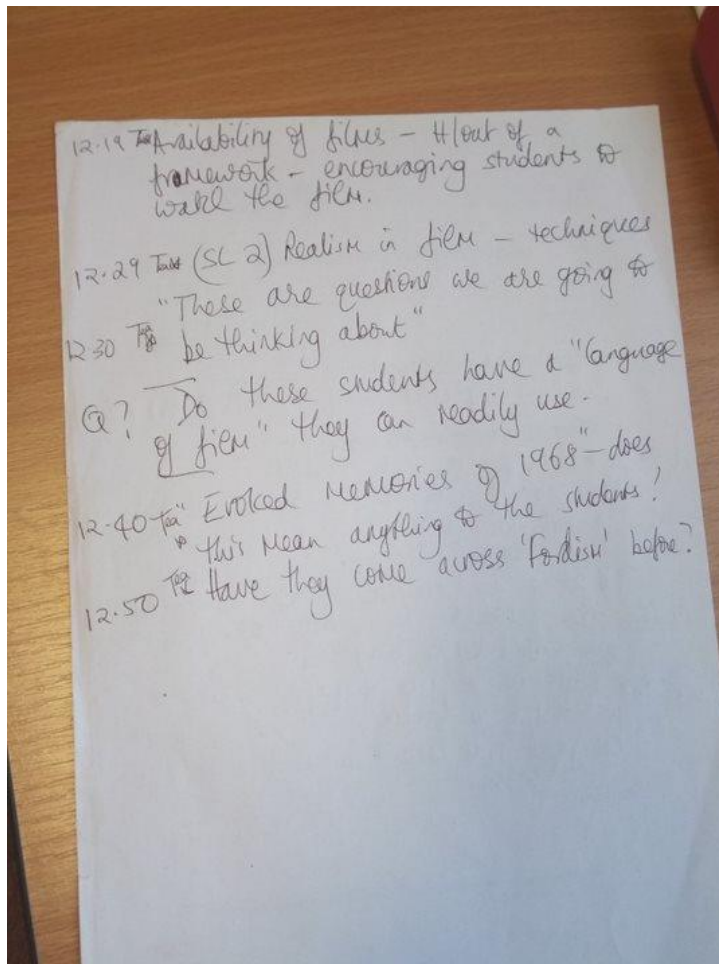 12.19 Availability of films - H/out of a
framework - encouraging students to
watch the film.
12.29 (SC 2) Realism in film - techniques
"These are questions we are going to
12.30 be thinking about"
Q? Do these students have a "language
of film" they can readily use.
12.40 "Evoked memories of 1968" - does
this mean anything to the students?
12.50 Have they come across 'Fordism' before?